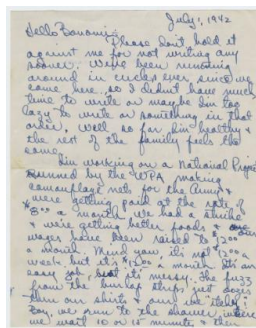 July 1, 1942
Hello Bonomi:
Please don't hold it
against me for not writing any
sooner. We've been running
around in circles ever since we
came here, so I didn't have much
time to write or maybe I'm too
lazy to write or something in that
order. Well so far I'm healthy &
the rest of the family feels the
same.
I'm working on a National Project
runned by the WPA making
camouflage nets for the Army &
were getting paid at the rate of
$8.00 a month. We had a strike
& we're getting better foods & our
wages have been raised to $12.00
a month. Mind you, it's not $12.00 a
week but it's $12.00 a month. It's an
easy job, but it's messy. The fuzz
from the burlap strips just goes
thru our shirts & our
we run to the shower where
we wait 10 or 15 minutes then